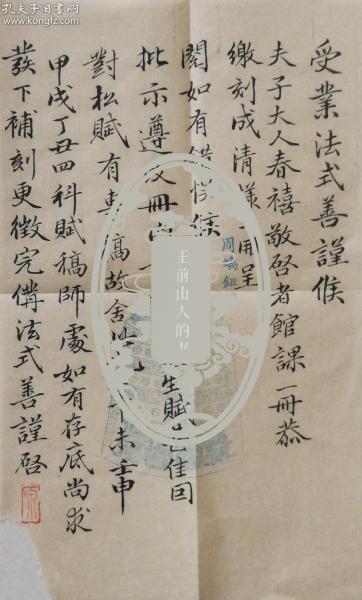 受業法式善謹候
夫子大人春禧敬啓者館課一冊恭
繳刻成清樣一冊呈
閱如有錯悞候
批示遵改冊內
對松賦有專稿故舍
甲戌丁丑四科賦稿師處如有存底尚求
發下補刻更徵完備法式善謹啓
生賦已佳回
未壬申
周
王前山人的书
孔夫子旧书网
www.kongfz.com